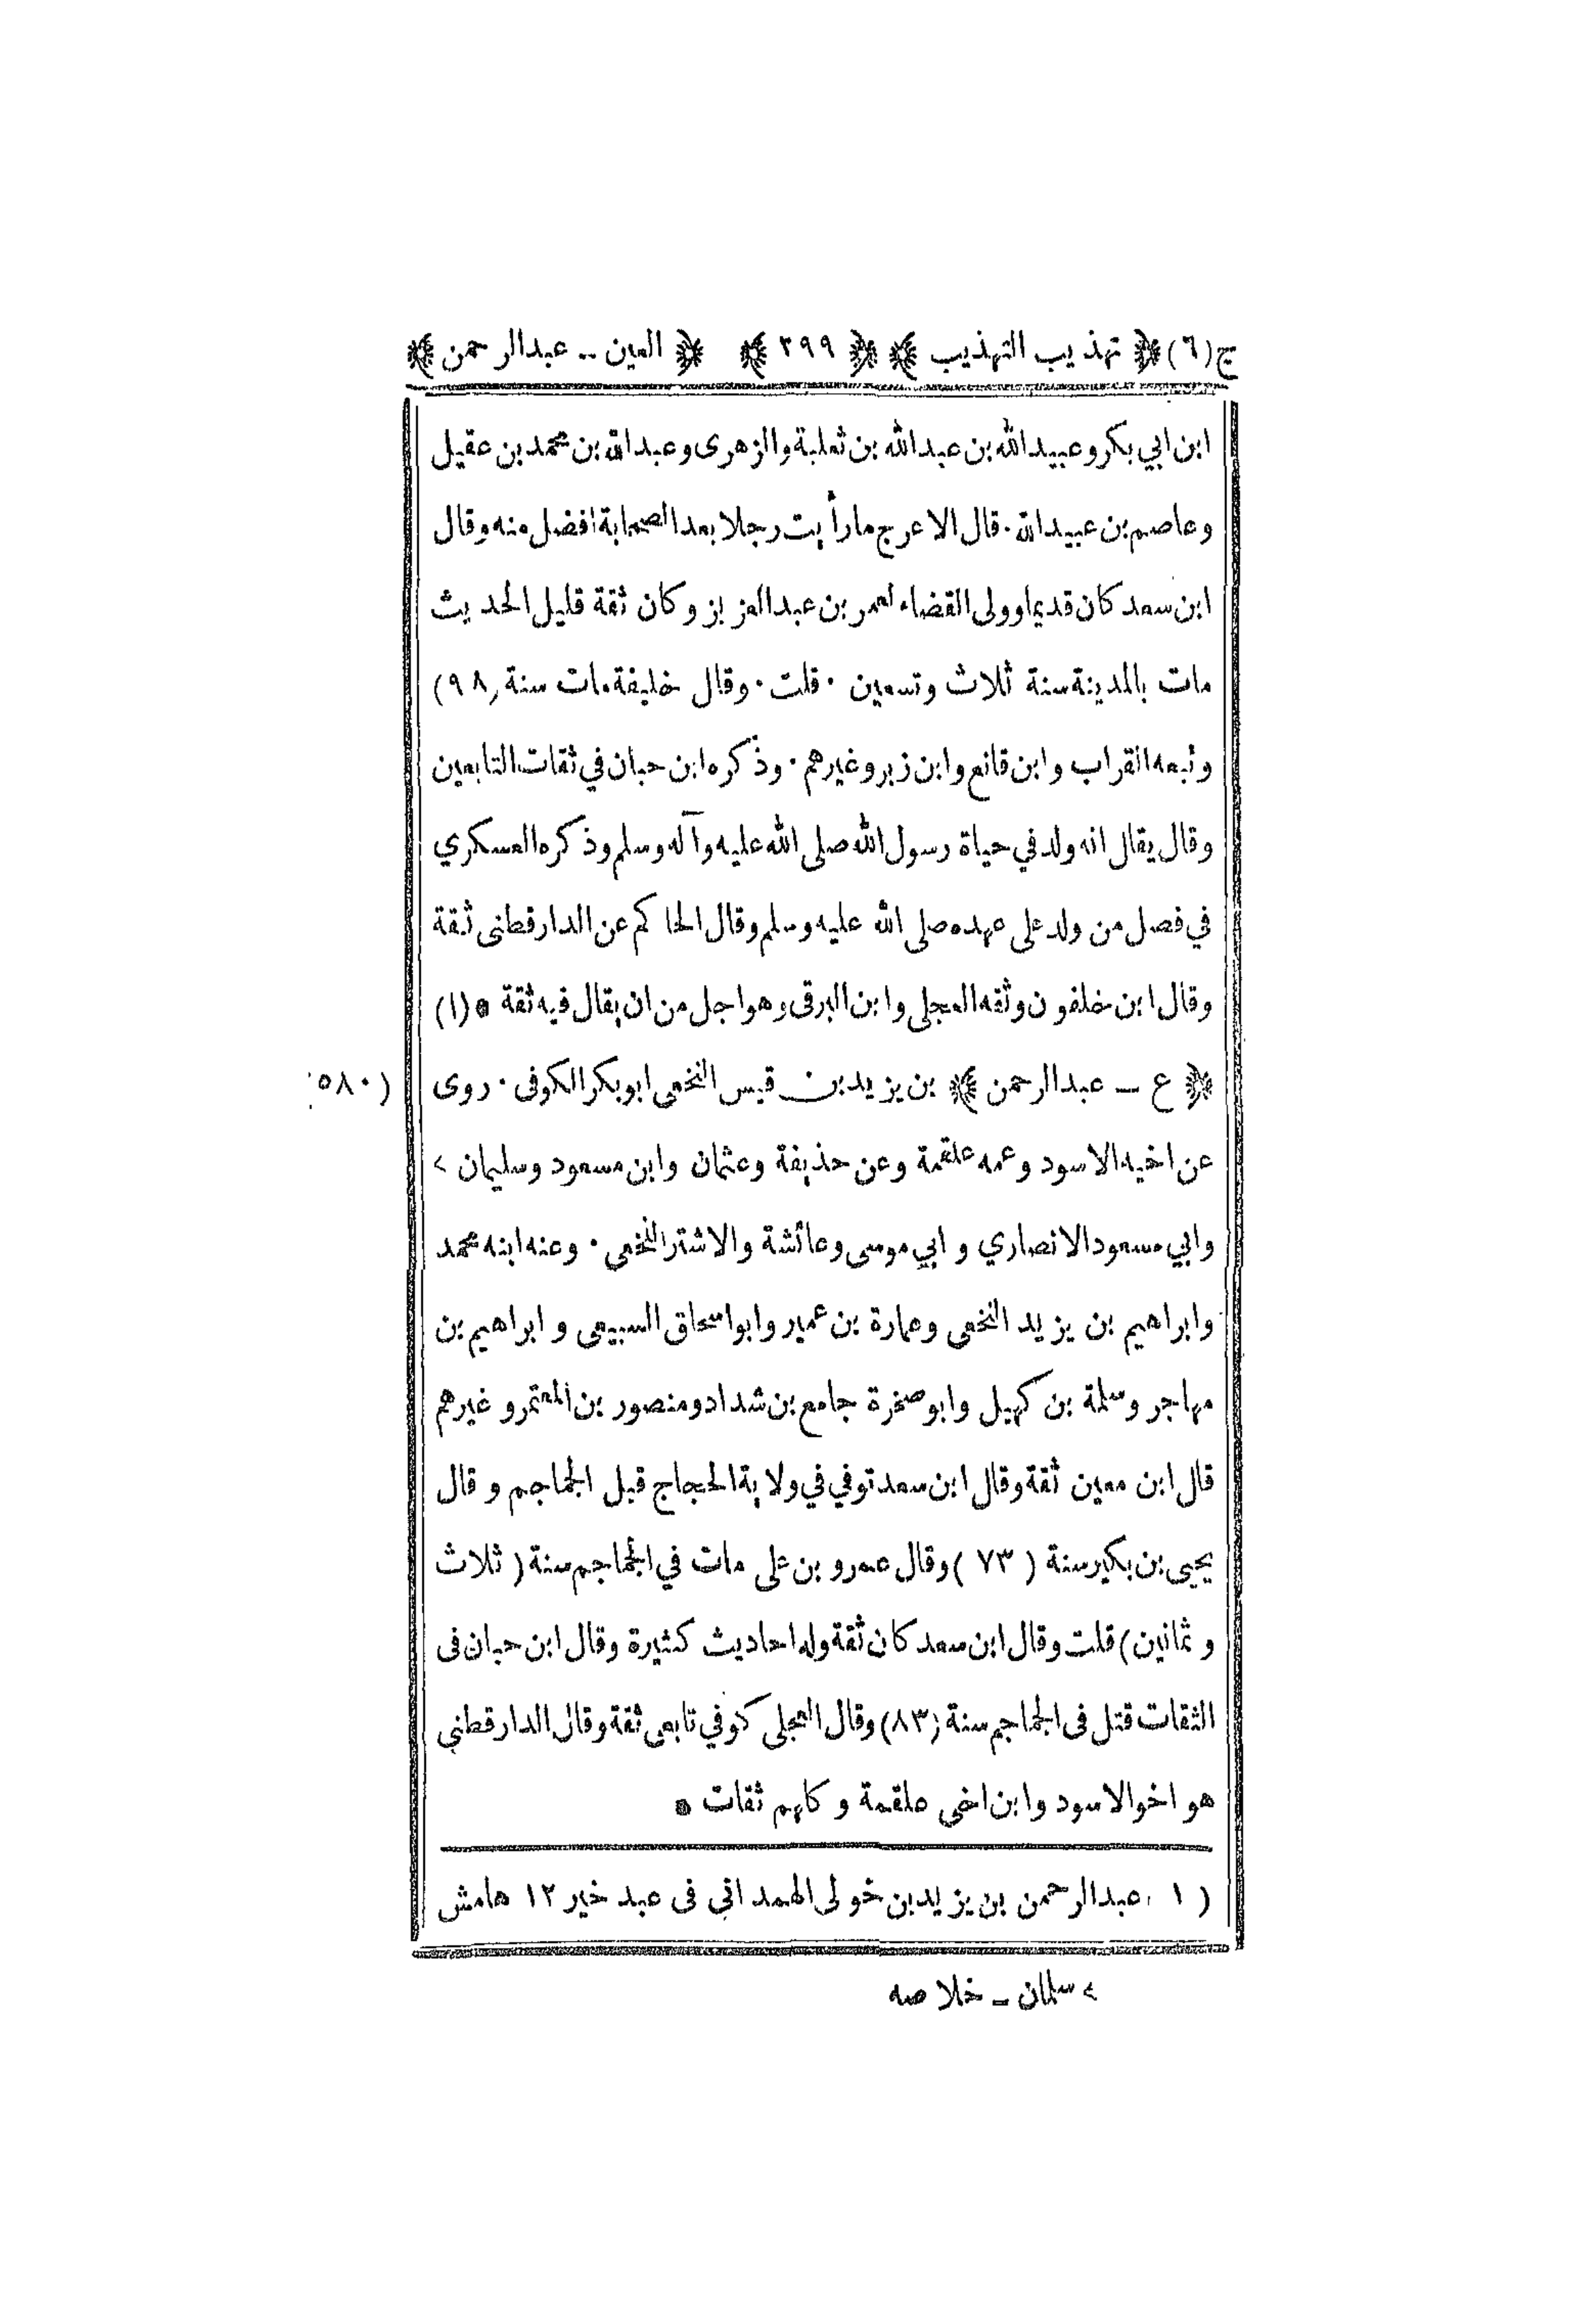 ج(٦) ﴿ تهذيب التهذيب ﴾ ﴿ ٢٩٩ ﴾ ﴿ العين -- عبدالرحمن ﴾
ابن ابي بكر وعبيدالله بن عبدالله بن ثعلبة والزهرى وعبدالله بن محمد بن عقيل
وعاصم بن عبيدالله ۰ قال الاعرج مارأيت رجلا بعد الصحابة افضل منه وقال
ابن سعد كان قديما وولى القضاء لعمر بن عبدالعزيز وكان ثقة قليل الحديث
مات بالمدينة سنة ثلاث وتسعين ۰ قلت ۰ وقال خليفة مات سنة (٩٨)
وتبعه القراب وابن قانع وابن زبر وغيرهم ۰ وذكره ابن حبان في ثقات التابعين
وقال يقال انه ولد في حياة رسول الله صلى الله عليه وآله وسلم وذكره العسكري
في فصل من ولد على عهده صلى الله عليه وسلم وقال الحاكم عن الدارقطنى ثقة
وقال ابن خلفون وثقه العجلى وابن البرقى وهو اجل من ان يقال فيه ثقة * (١)
﴿ ع - عبدالرحمن ﴾ بن يزيد بن قيس النخعى ابو بكر الكوفى ۰ روى
(٥٨٠
عن اخيه الاسود وعمه علقمة وعن حذيفة وعثمان وابن مسعود وسليمان >
وابي مسعود الانصاري و ابي موسى وعائشة والاشتر النخعى ۰ وعنه ابنه محمد
وابراهيم بن يزيد النخعى وعمارة بن عمير وابو اسحاق السبيعى و ابراهيم بن
مهاجر وسلمة بن كهيل وابو صخرة جامع بن شداد ومنصور بن المعتمر و غيرهم
قال ابن معين ثقة وقال ابن سعد توفي في ولاية الحجاج قبل الجماجم و قال
يحيى بن بكير سنة ( ٧٣ ) وقال عمرو بن على مات في الجماجم سنة ( ثلاث
و ثمانين) قلت وقال ابن سعد كان ثقة وله احاديث كثيرة وقال ابن حبان فى
الثقات قتل فى الجماجم سنة (٨٣) وقال العجلى كوفي تابعى ثقة وقال الدارقطني
هو اخو الاسود وابن اخى علقمة و كلهم ثقات *
( ١ ) عبدالرحمن بن يزيد بن خولى الهمدانى فى عبد خير ١٢ هامش
> سلمان - خلاصه